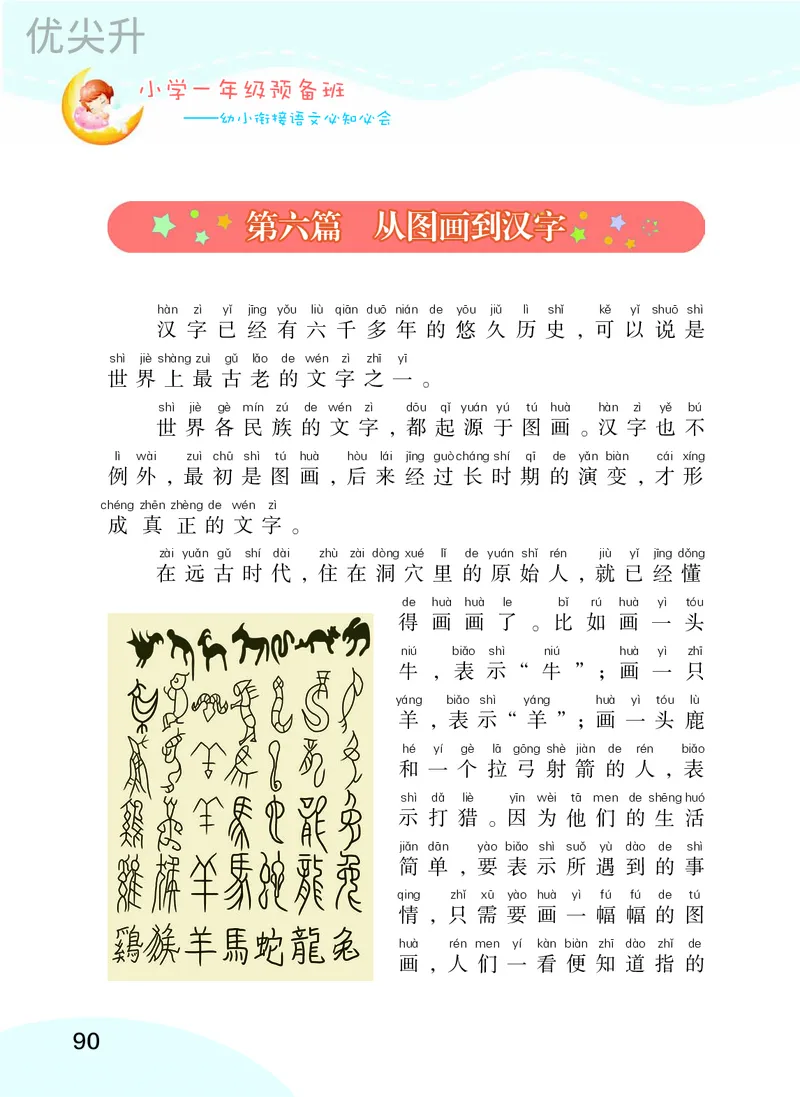 优尖升
小学一年级预备班
——幼小衔接语文必知必会
第六篇 从图画到汉字
hàn zì yǐ jīng yǒu liù qiān duō nián de yōu jiǔ lì shǐ kě yǐ shuō shì
汉字已经有六千多年的悠久历史,可以说是
shì jiè shàng zuì gǔ lǎo de wén zì zhī yī
世界上最古老的文字之一。
shì jiè gè mín zú de wén zì dōu qǐ yuán yú tú huà hàn zì yě bú
世界各民族的文字,都起源于图画。汉字也不
lì wài zuì chū shì tú huà hòu lái jīng guò cháng shí qī de yǎn biàn cái xíng
例外,最初是图画,后来经过长时期的演变,才形
chéng zhēn zhèng de wén zì
成真正的文字。
zài yuǎn gǔ shí dài zhù zài dòng xué lǐ de yuán shǐ rén jiù yǐ jīng dǒng
在远古时代,住在洞穴里的原始人,就已经懂
de huà huà le bǐ rú huà yì tóu
得画画了。比如画一头
niú biǎo shì niú huà yì zhī
牛,表示“牛”;画一只
yáng biǎo shì yáng huà yì tóu lù
羊,表示“羊”;画一头鹿
hé yí gè lā gōng shè jiàn de rén biǎo
和一个拉弓射箭的人,表
shì dǎ liè yīn wèi tā men de shēng huó
示打猎。因为他们的生活
jiǎn dān yào biǎo shì suǒ yù dào de shì
简单,要表示所遇到的事
qing zhǐ xū yào huà yì fú fú de tú
情,只需要画一幅幅的图
huà rén men yí kàn biàn zhī dào zhǐ de
画,人们一看便知道指的
鷄猴羊馬蛇龍兔
90